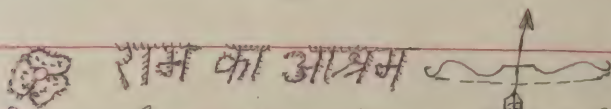 राम का आश्रम